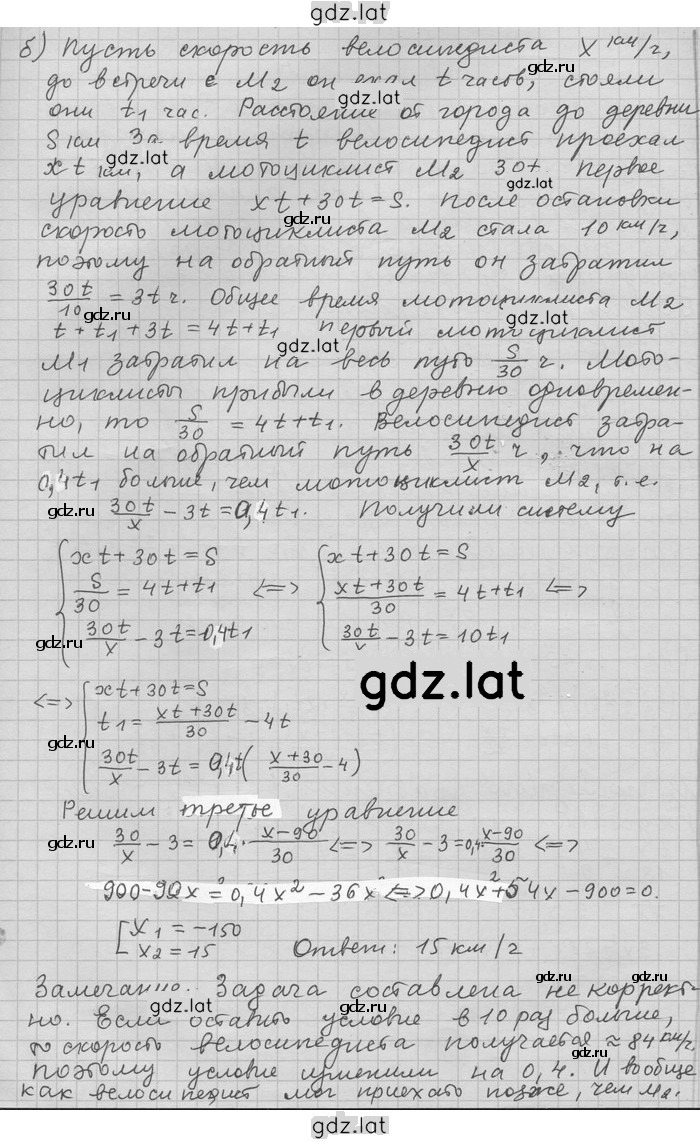 gdz.lat
б) Пусть скорость велосипедиста x км/г,
до встречи с M2 он ехал t часов, стояли
gdz.lat
они t1 час. Расстояние от города до деревни
gdz.ru
S км За время t велосипедист проехал
gdz.lat
xt км, а мотоциклист M2 30t. Первое
gdz.lat
уравнение xt + 30t = S. После остановки
gdz.ru
скорость мотоциклиста M2 стала 10 км/г,
поэтому на обратный путь он затратил
30t/10 = 3t г. Общее время мотоциклиста M2
gdz.ru
t + t1 + 3t = 4t + t1 первый мотоциклист
gdz.lat
M1 затратил на весь путь S/30 г. Мото-
циклисты прибыли в деревню одновремен-
но, то S/30 = 4t + t1. Велосипедист затра-
gdz.ru
тил на обратный путь 30t/x г, что на
gdz.lat
0,4t1 больше, чем мотоциклист M2, т.е.
gdz.ru
30t/x - 3t = 0,4t1. Получили систему
gdz.ru
{ xt + 30t = S { xt + 30t = S
S/30 = 4t + t1 <=> (xt + 30t)/30 = 4t + t1 <=>
30t/x - 3t = 0,4t1 30t/x - 3t = 10t1
gdz.ru
gdz.lat
gdz.lat
<=> { xt + 30t = S
t1 = (xt + 30t)/30 - 4t
gdz.ru
30t/x - 3t = 0,4t( (x + 30)/30 - 4)
Решим третье уравнение
gdz.ru
30/x - 3 = 0,4 · (x - 90)/30 <=> 30/x - 3 = 0,4 · (x - 90)/30 <=>
gdz.lat
900 - 90x = 0,4x² - 36x <=> 0,4x² + 54x - 900 = 0.
[ x1 = -150
x2 = 15 Ответ: 15 км/г
gdz.ru
Замечание. Задача составлена не коррект-
gdz.ru
но. Если оставить условие в 10 раз больше,
gdz.lat
то скорость велосипедиста получается ≈ 84 км/г,
gdz.ru
поэтому условие изменили на 0,4. И вообще
gdz.lat
как велосипедист мог приехать позже, чем M2.
gdz.lat